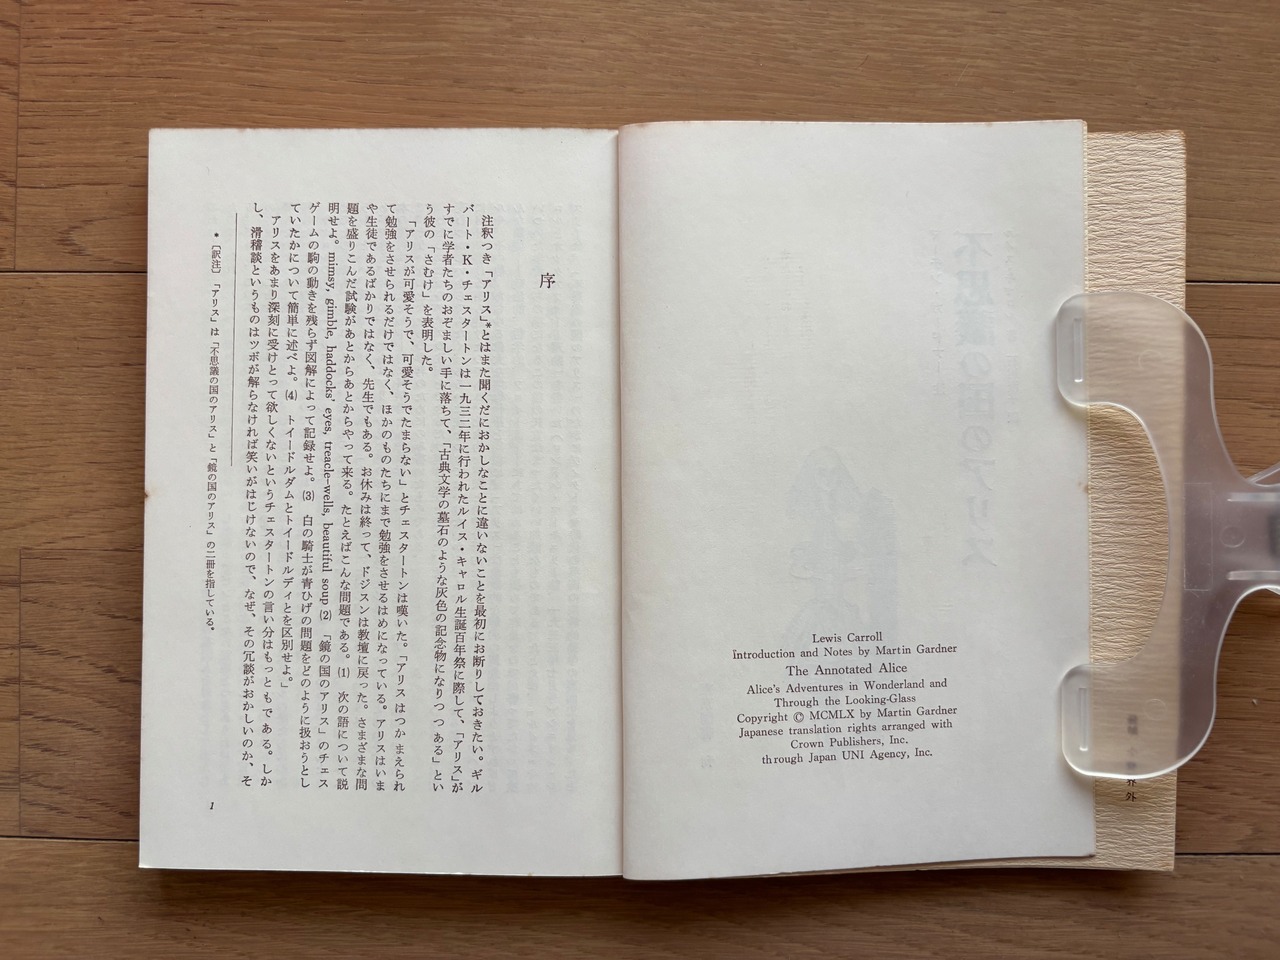 Lewis Carroll
Introduction and Notes by Martin Gardner
The Annotated Alice
Alice's Adventures in Wonderland and
Through the Looking-Glass
Copyright © MCMLX by Martin Gardner
Japanese translation rights arranged with
Crown Publishers, Inc.
through Japan UNI Agency, Inc.
序
注釈つき「アリス」*とはまた聞くだにおかしなことに違いないことを最初にお断りしておきたい。ギル
バート・K・チェスタートンは一九三二年に行われたルイス・キャロル生誕百年祭に際して、「アリス」が
すでに学者たちのおぞましい手に落ちて、「古典文学の墓石のような灰色の記念物になりつつ ある」とい
う彼の「さむけ」を表明した。
「アリスが可愛そうで、可愛そうでたまらない」とチェスタートンは嘆いた。「アリスはつかまえられ
て勉強をさせられるだけではなく、ほかのものたちにまで勉強をさせるはめになっている。アリスはいま
や生徒であるばかりではなく、先生でもある。お休みは終って、ドジスンは教壇に戻った。さまざまな問
題を盛りこんだ試験があとからあとからやって来る。たとえばこんな問題である。(1) 次の語について説
明せよ。mimsy, gimble, haddocks' eyes, treacle-wells, beautiful soup (2) 「鏡の国のアリス」のチェス
ゲームの駒の動きを残らず図解によって記録せよ。(3) 白の騎士が青ひげの問題をどのように扱おうとし
ていたかについて簡単に述べよ。(4) トイードルダムとトイードルディとを区別せよ。」
アリスをあまり深刻に受けとって欲しくないというチェスタートンの言い分はもっともである。しか
し、滑稽談というものはツボが解らなければ笑いがはじけないので、なぜ、その冗談がおかしいのか、そ
* 〔訳注〕「アリス」は「不思議の国のアリス」と「鏡の国のアリス」の二冊を指している。
1
界外